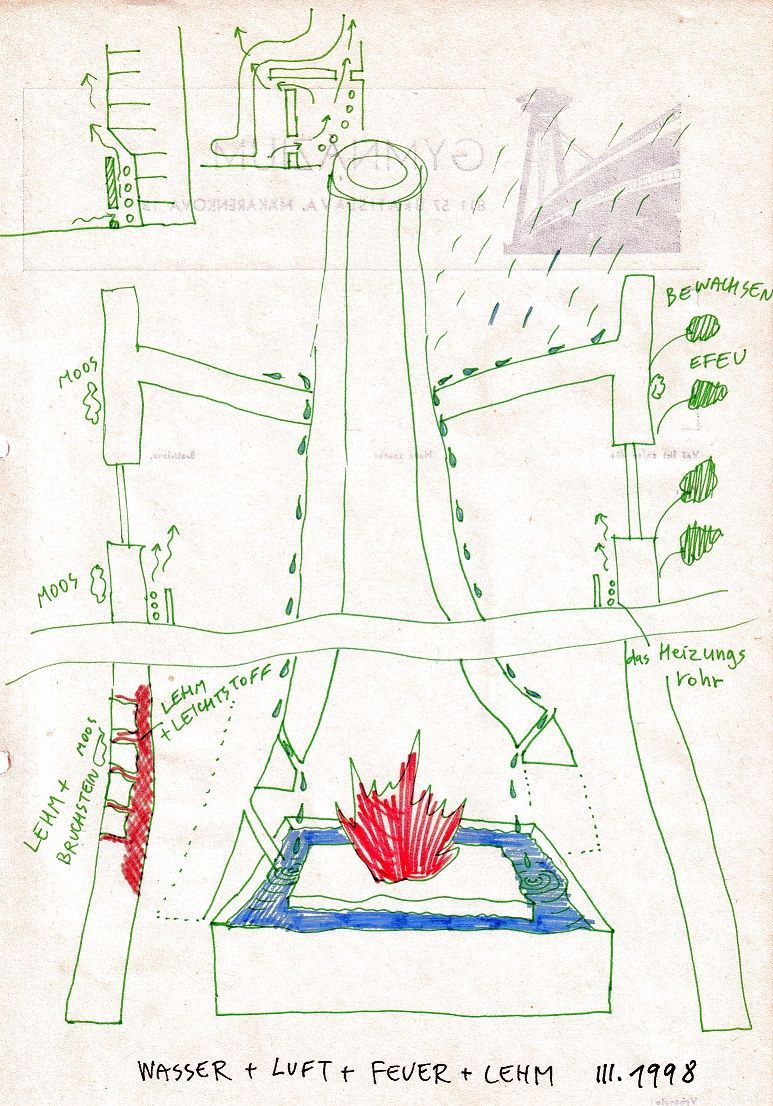 GYMNÁZIUM
BEWACHSEN
EFEU
MOOS
MOOS
das Heizungs
rohr
LEHM
+ LEICHTSTOFF
MOOS
LEHM +
BRUCHSTEIN
WASSER + LUFT + FEUER + LEHM III. 1998